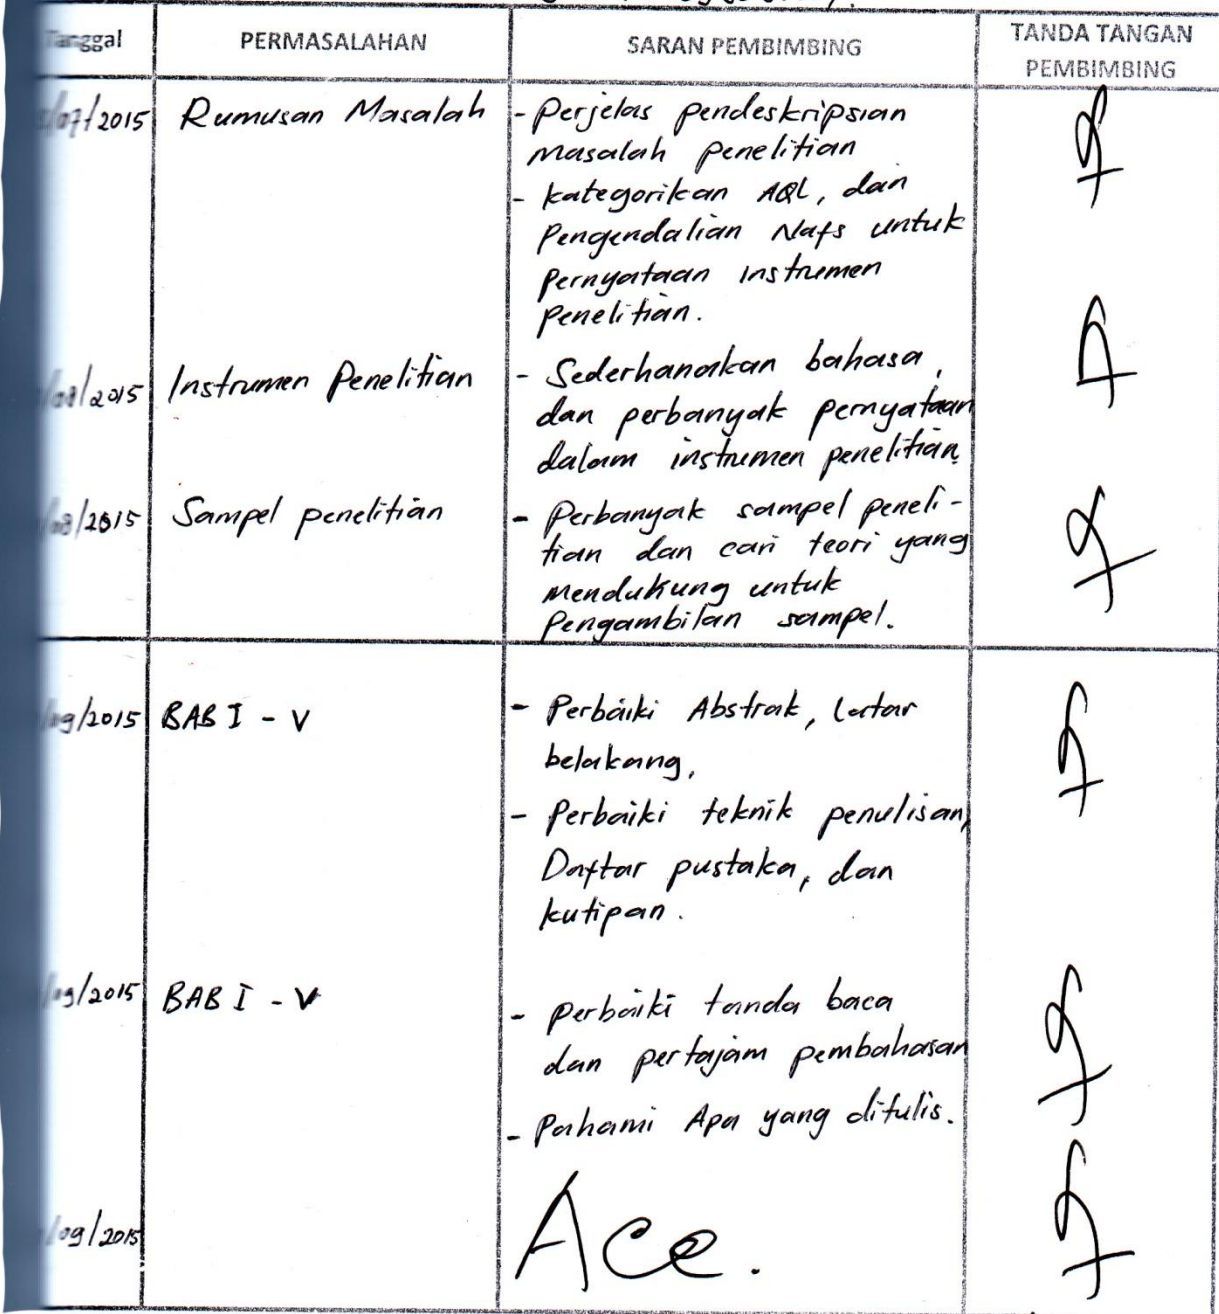 Tanggal PERMASALAHAN SARAN PEMBIMBING TANDA TANGAN
PEMBIMBING
/07/2015 Rumusan Masalah - Perjelas pendeskripsian
Masalah penelitian
- kategorikan AQL, dan
Pengendalian Nafs untuk
Pernyataan instrumen
Penelitian.
/08/2015 Instrumen Penelitian - Sederhanakan bahasa,
dan perbanyak pernyataan
dalam instrumen penelitian.
/08/2015 Sampel penelitian - Perbanyak sampel peneli-
tian dan cari teori yang
mendukung untuk
Pengambilan sampel.
/09/2015 BAB I - V - Perbaiki Abstrak, Latar
belakang,
- Perbaiki teknik penulisan,
Daftar pustaka, dan
kutipan.
/09/2015 BAB I - V - Perbaiki tanda baca
dan pertajam pembahasan
- Pahami Apa yang ditulis.
/09/2015 Acc.